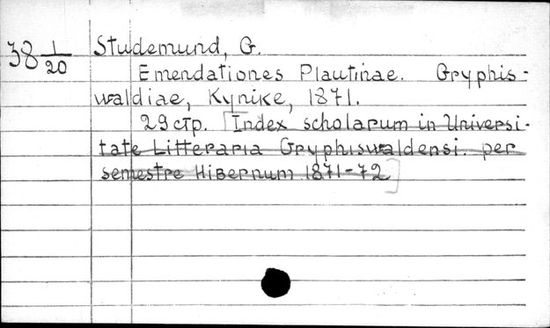 38 1/20 Studemund, G.
Emendationes Plautinae. Gryphis-
waldiae, Kunike, 1871.
29 стр. [Index scholarum in Universi-
tate Litteraria Gryphiswaldensi per
semestre Hibernum 1871-72]